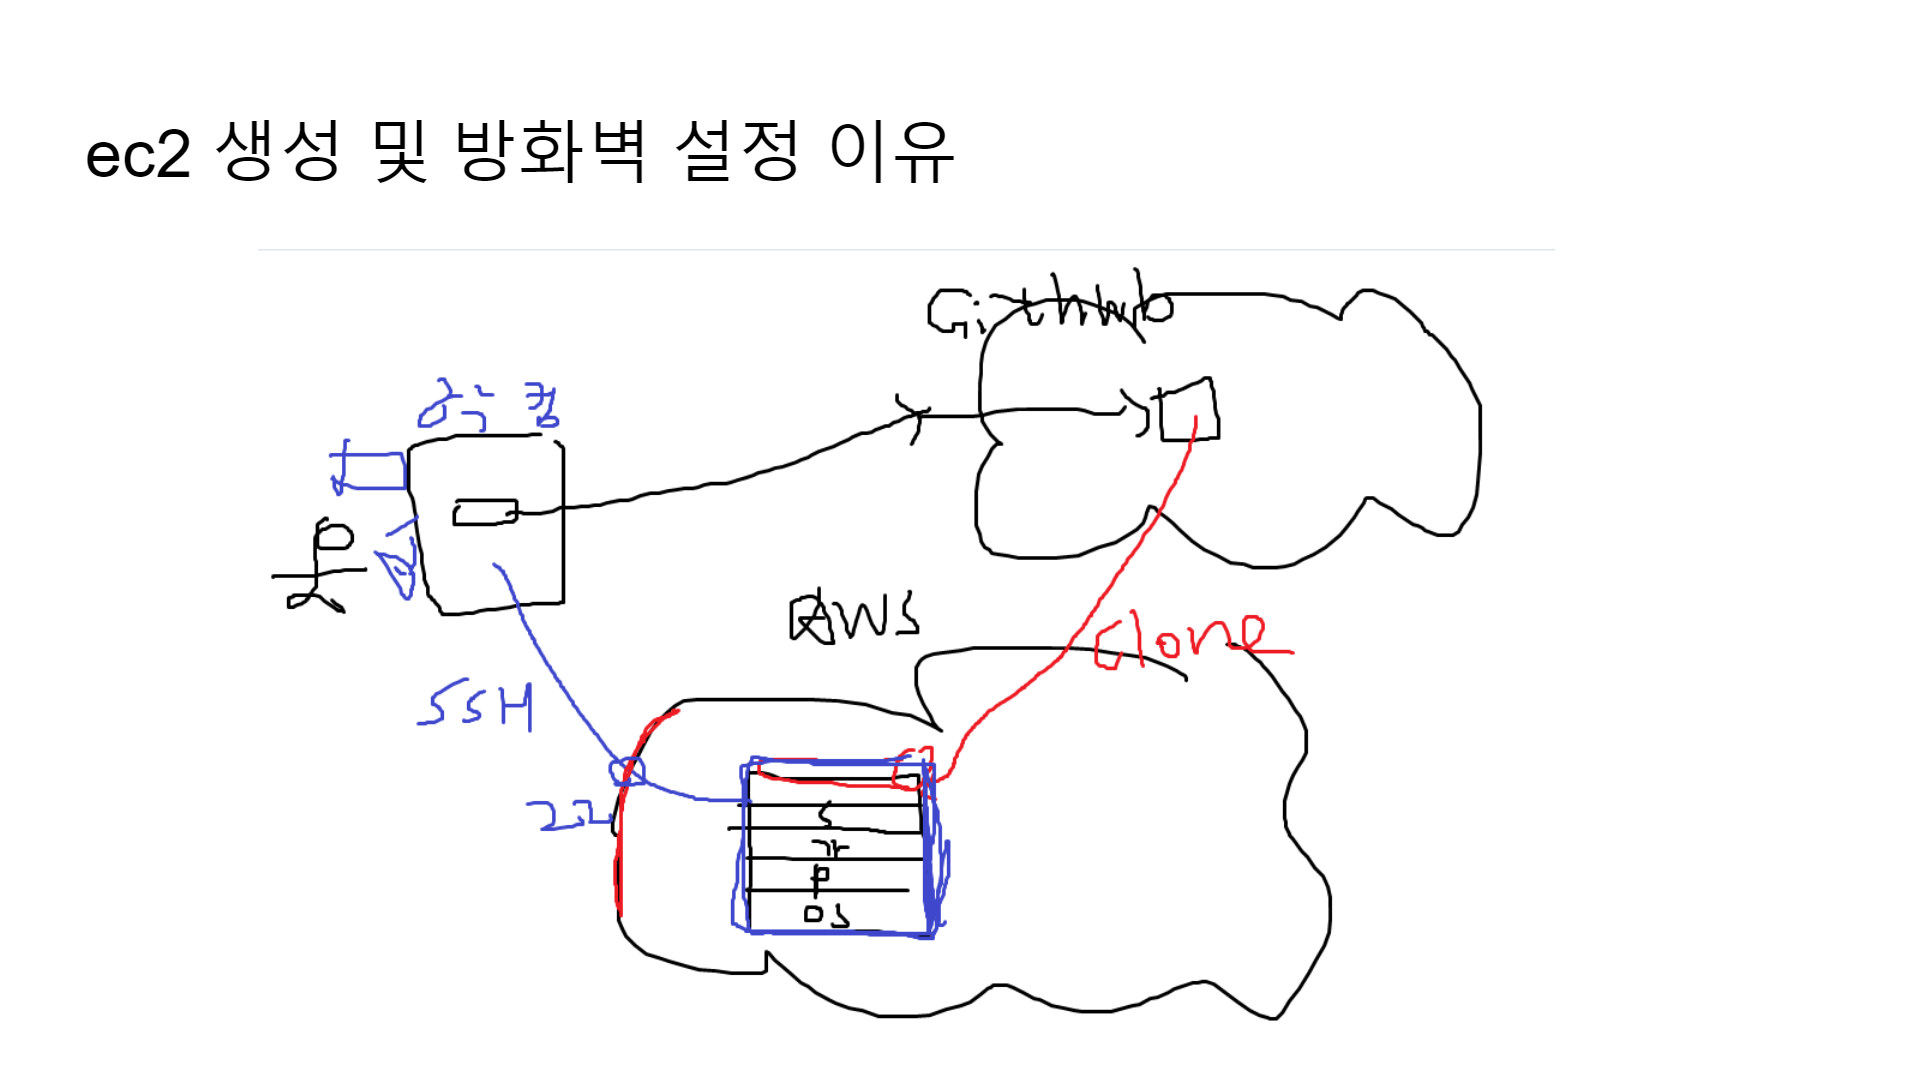 ec2 생성 및 방화벽 설정 이유
Github
AWS
Clone
SSH
22
S
가
P
OS